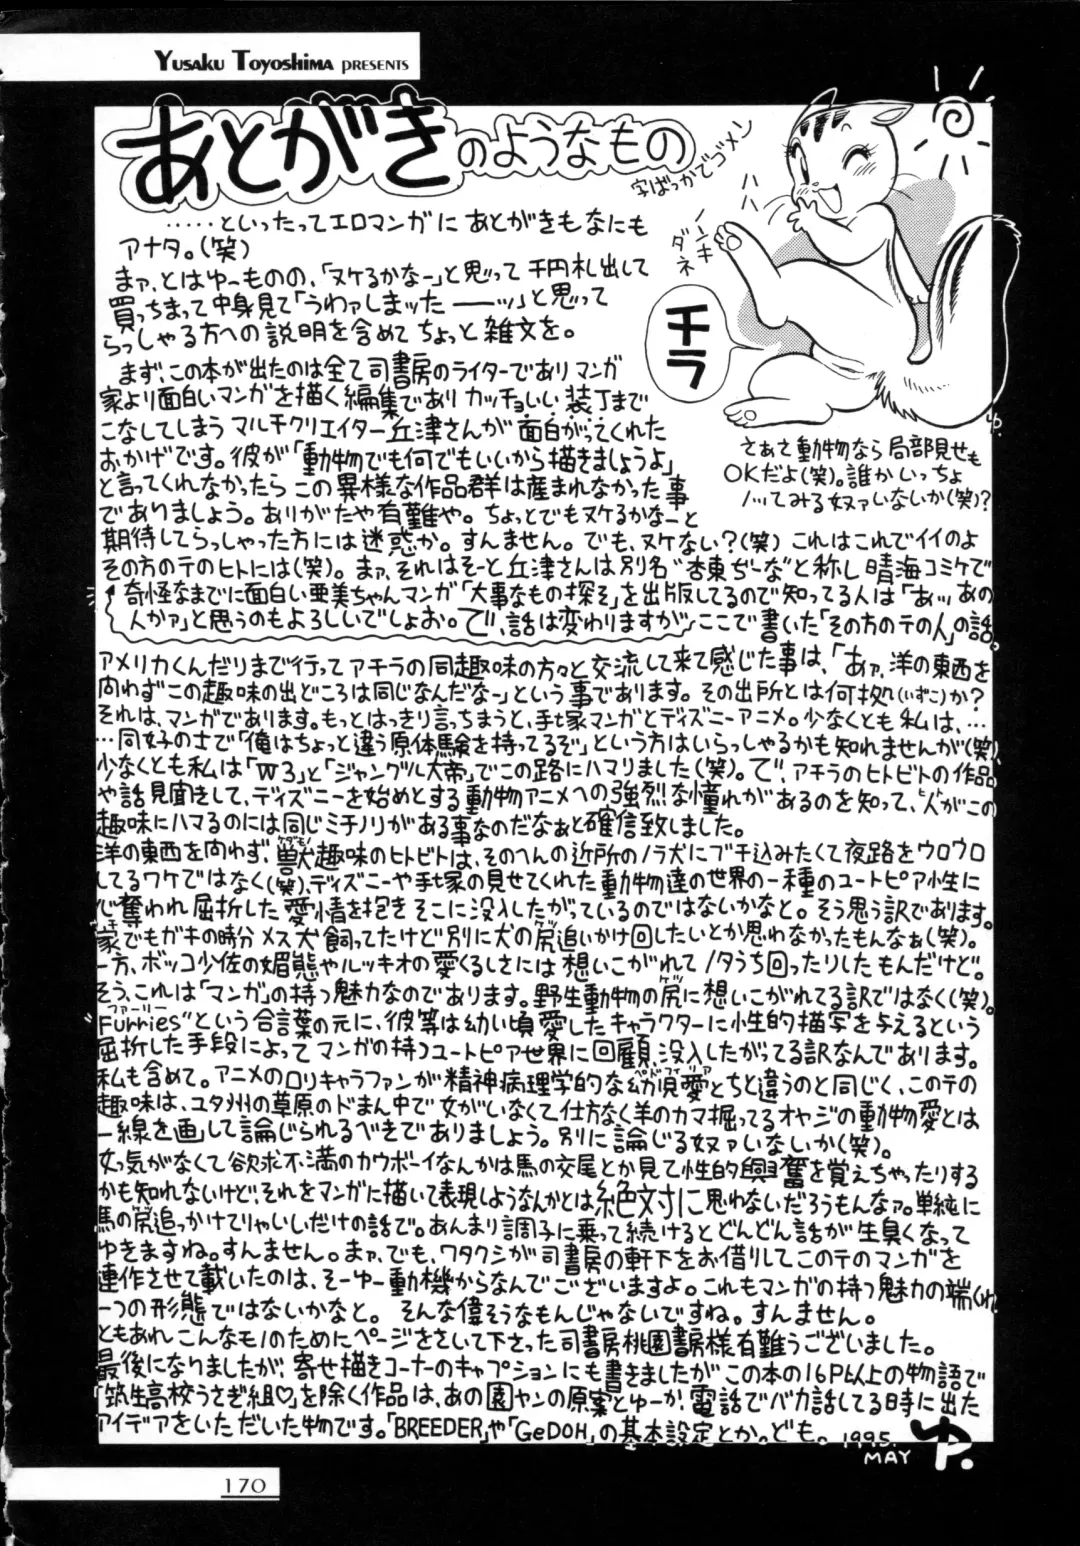 YUSAKU TOYOSHIMA PRESENTS
あとがきのようなもの
字ばっかでゴメン
‥‥‥といったってエロマンガに あとがきもなにも
アナタ。(笑)
まァ、とはゆーものの、「ヌケるかなー」と思って 千円札出して
買っちまって中身見て「うわァしまッた――ッ」と思って
らっしゃる方への説明を含めて ちょっと雑文を。
ノンキ
ダネ
チラ
さぁさ動物なら局部見せも
OKだよ(笑)。誰かいっちょ
ノッてみる奴ァいないか(笑)?
まず、この本が出たのは全て司書房のライターでありマンガ
家より面白いマンガを描く編集でありカッチョいい装丁まで
こなしてしまう マルチクリエイター丘津さんが 面白がってくれた
おかげです。彼が「動物でも何でもいいから描きましょうよ」
と言ってくれなかったら この異様な作品群は産まれなかった事
でありましょう。ありがたや有難や。ちょっとでもヌケるかなーと
期待してらっしゃった方には迷惑か。すんません。でも、ヌケない?(笑) これはこれでイイのよ
その方のテのヒトには(笑)。まァ、それはそーと丘津さんは別名"杏東ぢーな"と称し晴海コミケで
奇怪なまでに面白い亜美ちゃんマンガ「大事なもの探そ」を出版してるので知ってる人は「あッあの
人かァ」と思うのもよろしいでしょお。で、話は変わりますが ここで書いた「その方のテの人」の話。
アメリカくんだりまで行ってアチラの同趣味の方々と交流して来て感じた事は、「あァ、洋の東西を
問わずこの趣味の出どころは同じなんだなー」という事であります。その出所とは何拠(いずこ)か?
それは、マンガであります。もっとはっきり言っちまうと、手塚マンガとディズニーアニメ。少なくとも私は、‥
‥同好の士で「俺はちょっと違う原体験を持ってるぞ」という方はいらっしゃるかも知れませんが(笑)、
少なくとも私は「W3」と「ジャングル大帝」でこの路にハマりました(笑)。で、アチラのヒトビトの作品
や話見聞きして、ディズニーを始めとする動物アニメへの強烈な憧れがあるのを知って、人がこの
趣味にハマるのには同じミチノリがある事なのだなぁと確信致しました。
洋の東西を問わず、獣趣味のヒトビトは、そのへんの近所のノラ犬にブチ込みたくて夜路をウロウロ
してるワケではなく(笑)、ディズニーや手塚の見せてくれた動物達の世界の一種のユートピア性に
心奪われ屈折した愛情を抱きそこに没入したがっているのではないかなと。そう思う訳であります。
家でもガキの時分メス犬飼ってたけど別に犬の尻追いかけ回したいとか思わなかったもんなぁ(笑)。
一方、ボッコ少佐の媚態やルッキオの愛くるしさには想いこがれてノタうち回ったりしたもんだけど。
そう、これは「マンガ」の持つ魅力なのであります。野生動物の尻に想いこがれてる訳ではなく(笑)。
"Furries"という合言葉の元に、彼等は幼い頃愛したキャラクターに性的描写を与えるという
屈折した手段によってマンガの持つユートピア世界に回顧、没入したがってる訳なんであります。
私も含めて。アニメのロリキャラファンが精神病理学的な幼児愛とちと違うのと同じく、このテの
趣味は、ユタ州の草原のドまん中で女がいなくて仕方なく羊のカマ掘ってるオヤジの動物愛とは
一線を画して論じられるべきでありましょう。別に論じる奴ァいないか(笑)。
女っ気がなくて欲求不満のカウボーイなんかは馬の交尾とか見て性的興奮を覚えちゃったりする
かも知れないけど、それをマンガに描いて表現しようなんかとは絶対に思わないだろうもんなァ。単純に
馬の尻追っかけてりゃいいだけの話で。あんまり調子に乗って続けるとどんどん話が生臭くなって
ゆきますね。すんません。まァ、でも、ワタクシが司書房の軒下をお借りしてこのテのマンガを
連作させて載いたのは、そーゆー動機からなんでございますよ。これもマンガの持つ魅力の端くれ
一つの形態ではないかなと。そんな偉そうなもんじゃないですね。すんません。
ともあれこんなモノのためにページをさいて下さった司書房桃園書房様有難うございました。
最後になりましたが、寄せ描きコーナーのキャプションにも書きましたがこの本の16P以上の物語で
「筑生高校うさぎ組♡」を除く作品は、あの園ヤンの原案とゆーか、電話でバカ話してる時に出た
アイデアをいただいた物です。「BREEDER」や「GeDOH」の基本設定とか。ども。1995.
MAY
ゆ.
170